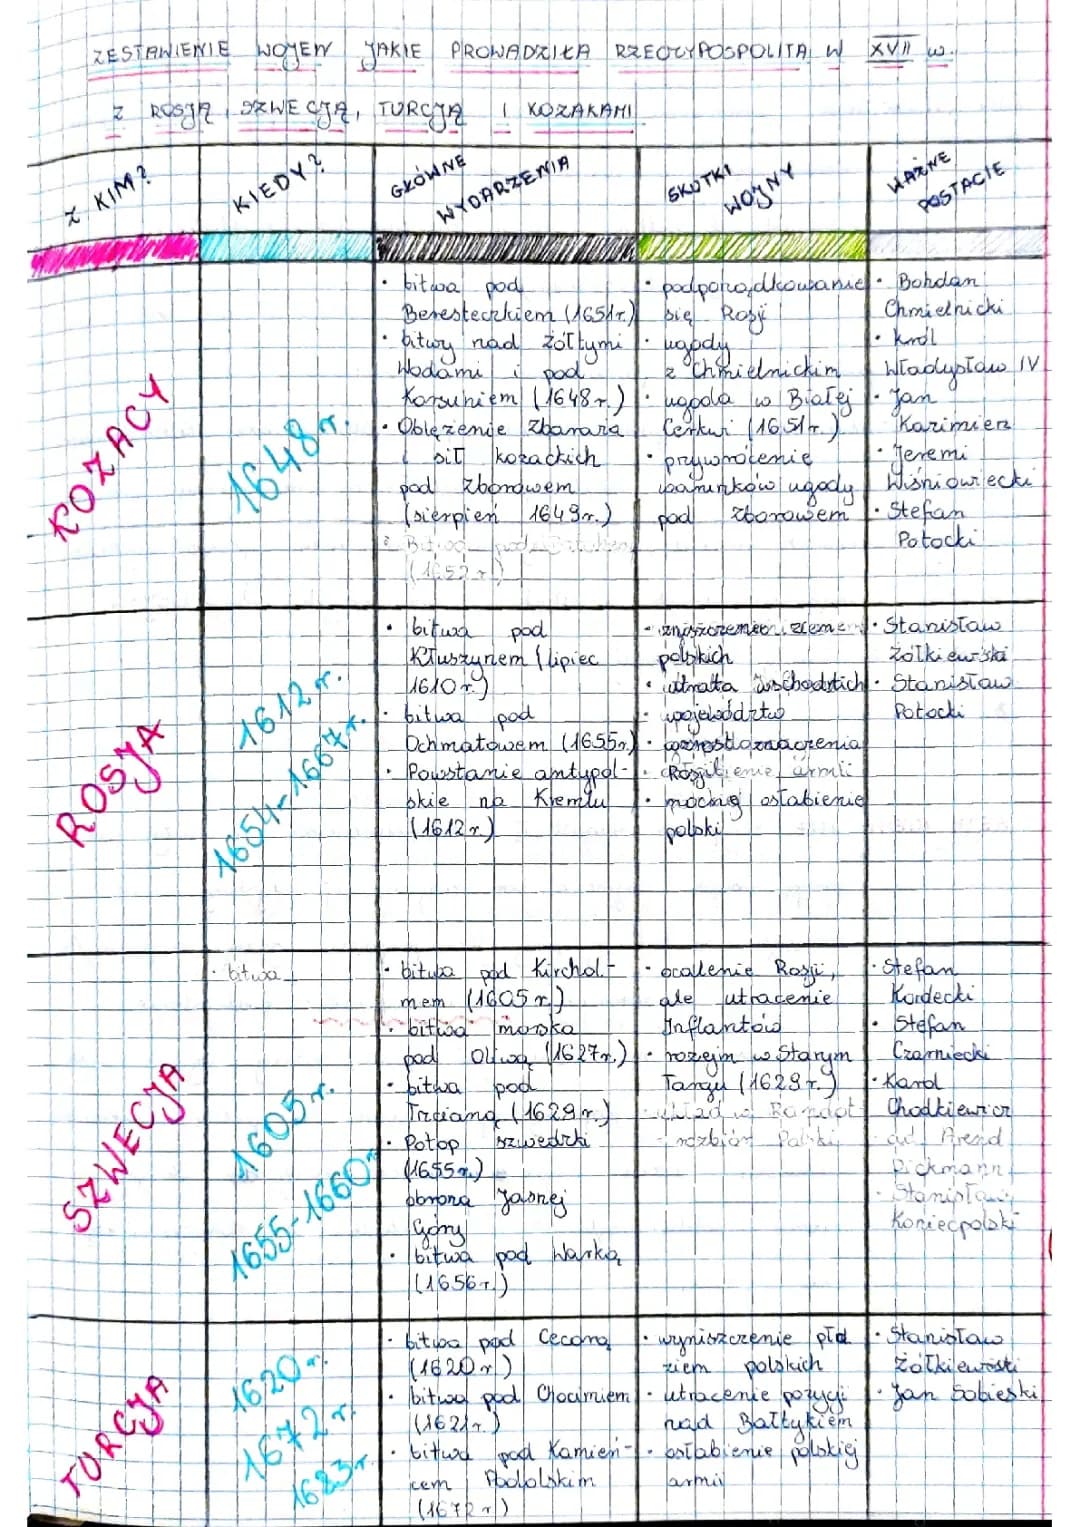 ZESTAWIENIE WOJEN JAKIE PROWADZIŁA RZECZYPOSPOLITA W XVII w.
Z ROSJĄ, SZWECJĄ, TURCJĄ I KOZAKAMI
Z KIM?
KIEDY?
GŁÓWNE
WYDARZENIA
SKUTKI
WOJNY
WAŻNE
POSTACIE
KOZACY
1648r.
• bitwa pod
Beresteczkiem (1651r.)
• bitwy nad Żółtymi
Wodami i pod
Korsuniem (1648r.)
• Oblężenie Zbaraża
i sił kozackich
pod Zborowem
(sierpień 1649r.)
• Bitwa pod
• podporządkowanie
się Rosji
• ugody
z Chmielnickim
• ugoda w Białej
Cerkwi (1651r.)
• przywrócenie
warunków ugody
pod Zborowem
• Bohdan
Chmielnicki
• król
Władysław IV
• Jan
Kazimierz
• Jeremi
Wiśniowiecki
• Stefan
Potocki
ROSJA
1612r.
1654-1667r.
• bitwa pod
Kłuszynem (lipiec
1610r.)
• bitwa pod
Ochmatowem (1655r.)
• Powstanie antypol-
skie na Kremlu
(1612r.)
• zniszczenie ziem
polskich
• utrata wschodnich
• województw
• wzrost znaczenia
• Rozbicie armii
• mocne osłabienie
polski
• Stanisław
Żółkiewski
• Stanisław
Potocki
SZWECJA
• bitwa
1605r.
1655-1660r.
• bitwa pod Kirchol-
mem (1605r.)
• bitwa morska
pod Oliwą (1627r.)
• bitwa pod
Trzcianą (1629r.)
• Potop szwedzki
(1655r.)
obrona Jasnej
Góry
• bitwa pod Warką
(1656r.)
• ocalenie Rosji,
ale utracenie
Inflantów
• rozejm w Starym
Targu (1629r.)
• układ w Radnot
- rozbiór Polski
• Stefan
Kordecki
• Stefan
Czarniecki
• Karol
Chodkiewicz
Arend
Dickmann
• Stanisław
Koniecpolski
TURCJA
1620r.
1672r.
1683r.
• bitwa pod Cecorą
(1620r.)
• bitwa pod Chocimiem
(1621r.)
• bitwa pod Kamień-
cem Podolskim
(1672r.)
• wyniszczenie płd.
ziem polskich
• utracenie pozycji
nad Bałtykiem
• osłabienie polskiej
armii
• Stanisław
Żółkiewski
• Jan Sobieski